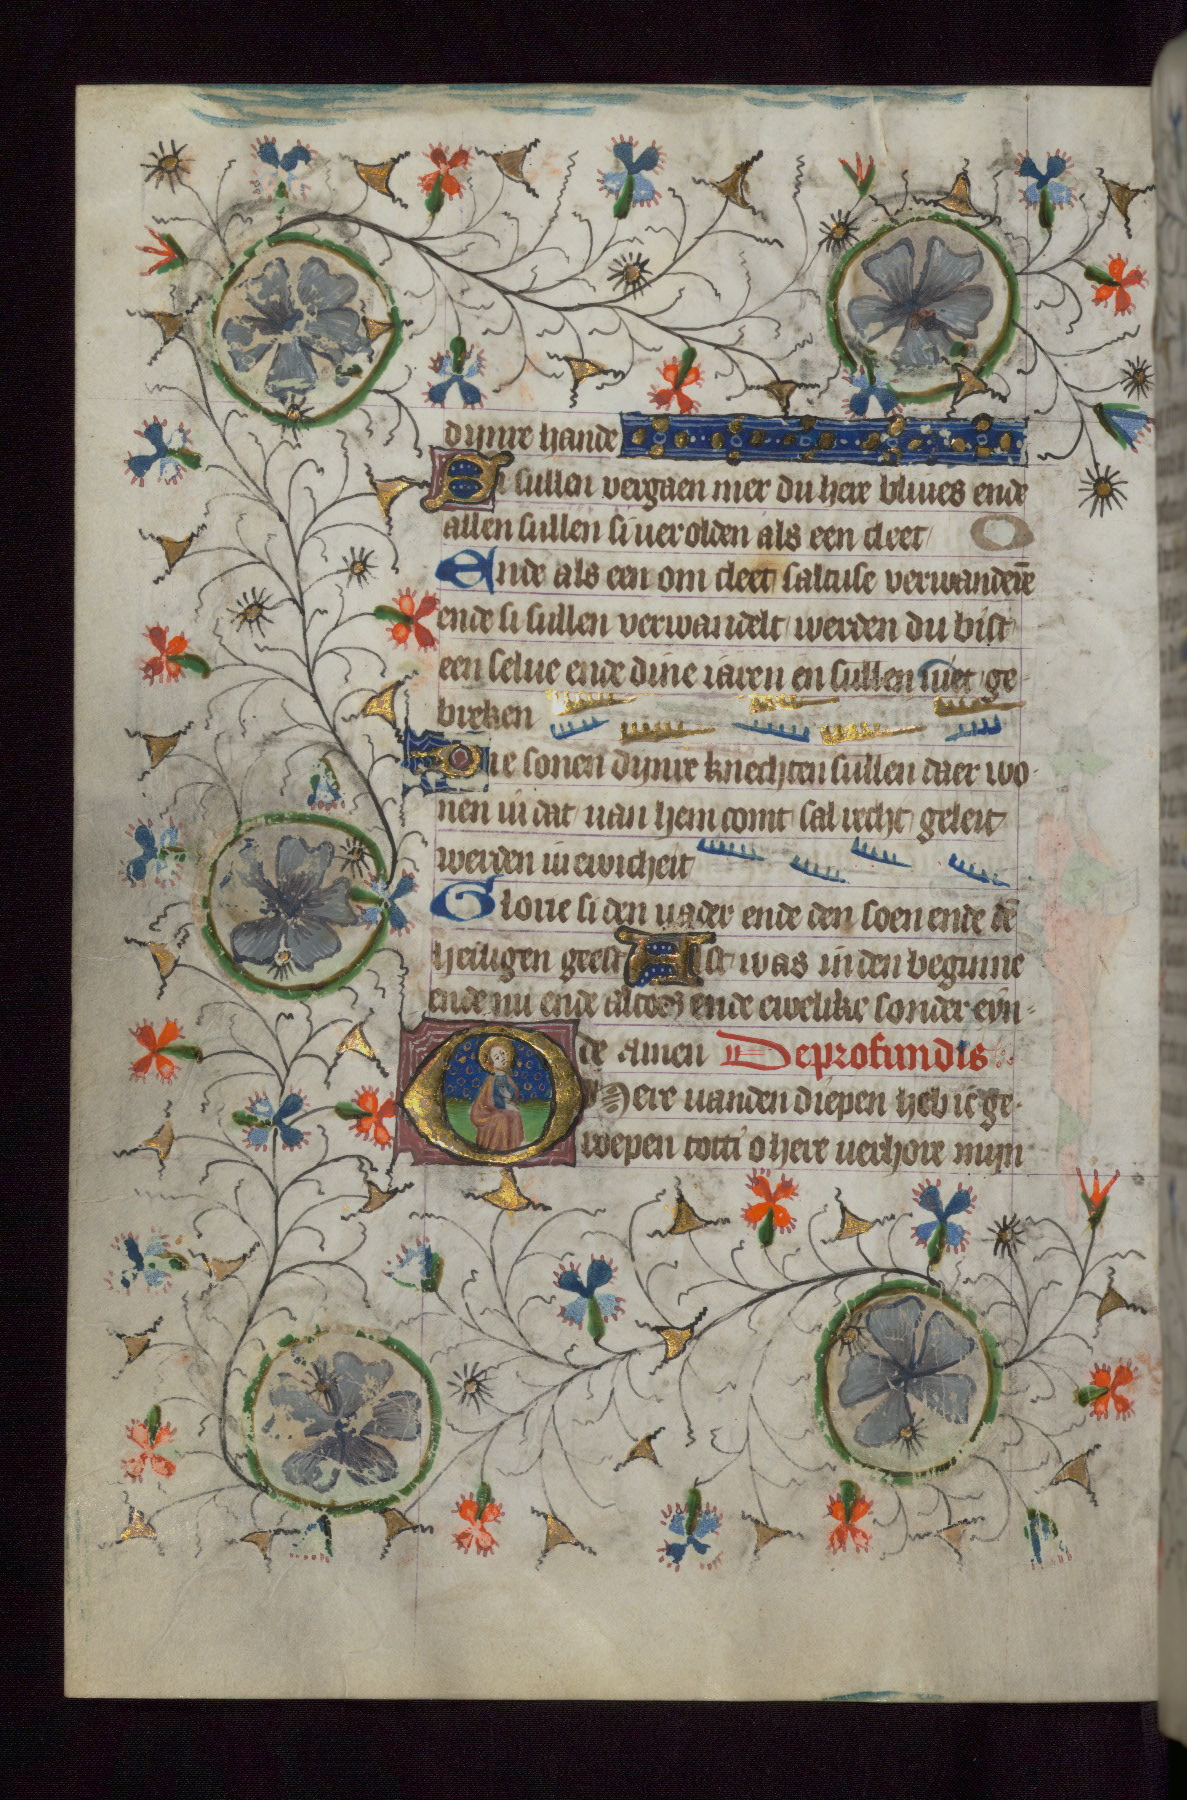 dijnre hande
Si sullen vergaen mer du here bliues ende
allen sullen si uerolden als een cleet
Ende als een om cleet saltuse verwanderē
ende si sullen verwandelt werden du bist
een selue ende dine iaren en sullen niet ge-
breken
Die sonen dijnre knechten sullen daer wo-
nen in dat uan hem comt sal recht geleit
werden in ewicheit
Glorie si den uader ende den soen ende dē
heiligen geest Alst was in den beginne
ende nu ende altoes ende ewelike sonder eyn-
de amen Deprofundis
O Here uanden diepen heb ic ge-
roepen totti o here uerhore mijn